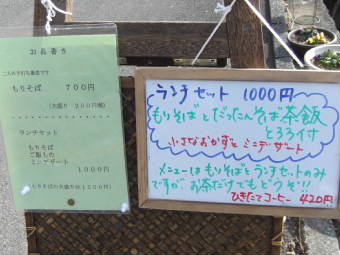 お品書き
二人の手打ち蕎麦です
もりそば 700円
(大盛り 200円増)
ランチセット
もりそば
ご飯もの
ミニデザート
1000円
(もりそばの大盛りは1200円)
ランチセット 1000円
もりそばとだったんそば茶飯
とろろ付
小さなおかずとミニデザート
メニューはもりそばとランチセットのみ
ですが、お茶だけでもどうぞ!!
ひきたてコーヒー 420円